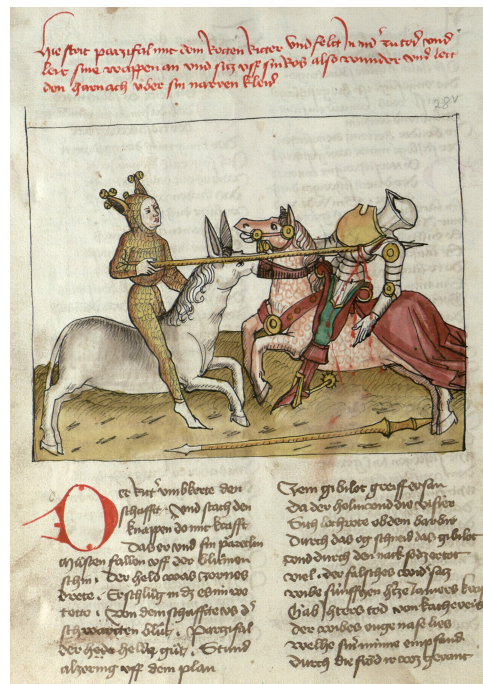 Hie strit parzifal mit dem Rotten Ritter Vnd felt In zu tod vnd
leit sine wappen an vnd sitz vff sin Ros also wunder vnd leit
den harnach vber sin narren kleid
28v
Der Rit' vmbkerte den
schafft . Vnd stach den
knappen do mit krafft
Das er vnd sin pferdlin
Musten fallen vff der blumen
schin . Der held waas zornes
drete . Er schlug in dz es im we
tette . Von dem schaffte es d'
schwartten blutz . Parzifal
der held gutz . Stund
alzornig vff dem plan
gibilot greiff er san
Da der helm vnd die vasier
Sich lochrote ob dem barbier
Durch das og schneid das gibilot
vnd durch den nack so dz er tot
viel . der falsches wid'satz
wibe sunffzen hertze iamers
Gab Ihters tod von
der wibes ouge nass lies
welhe sin minne empfand
Durch die fröd ir wz gerant